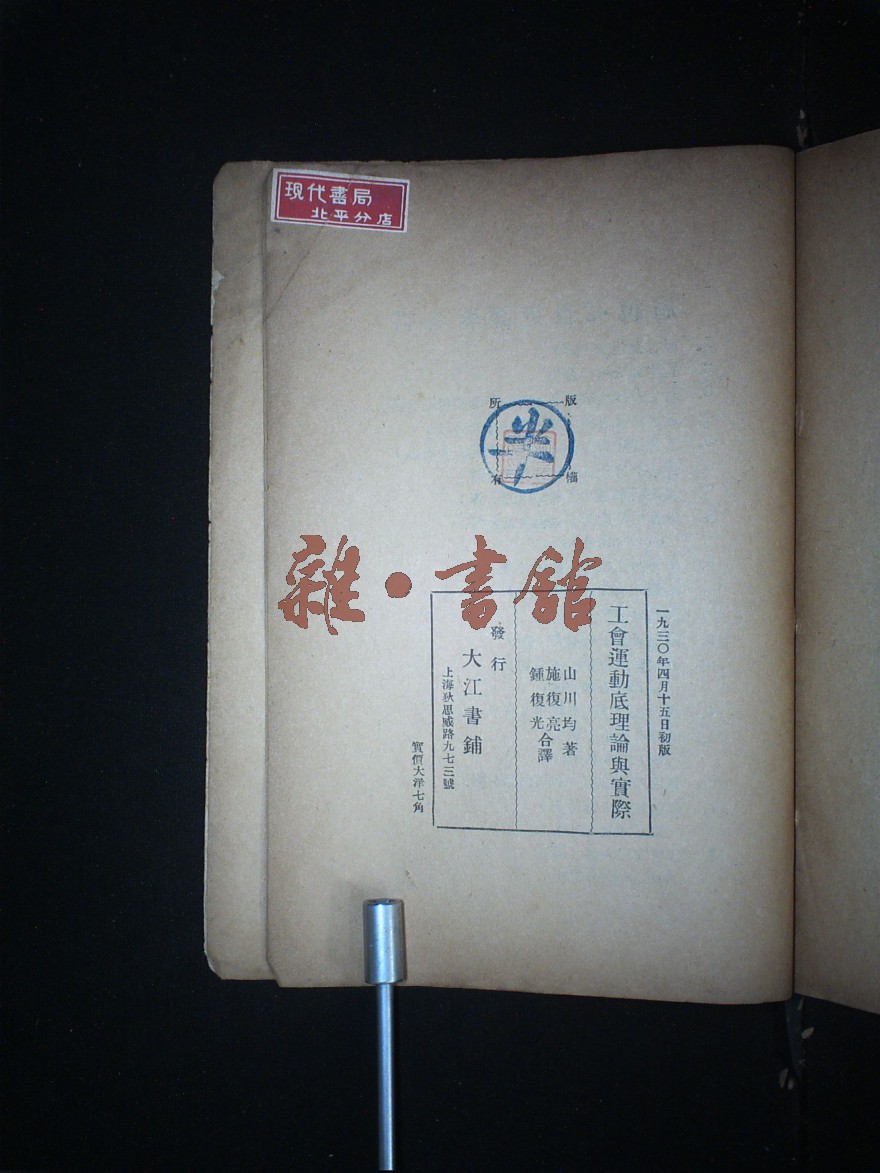 現代書局
北平分店
版權所有
雜·書館
一九三〇年四月十五日初版
工會運動底理論與實際
山川均著
施復亮
鍾復光
合譯
發行
大江書鋪
上海狄思威路九七三號
實價大洋七角